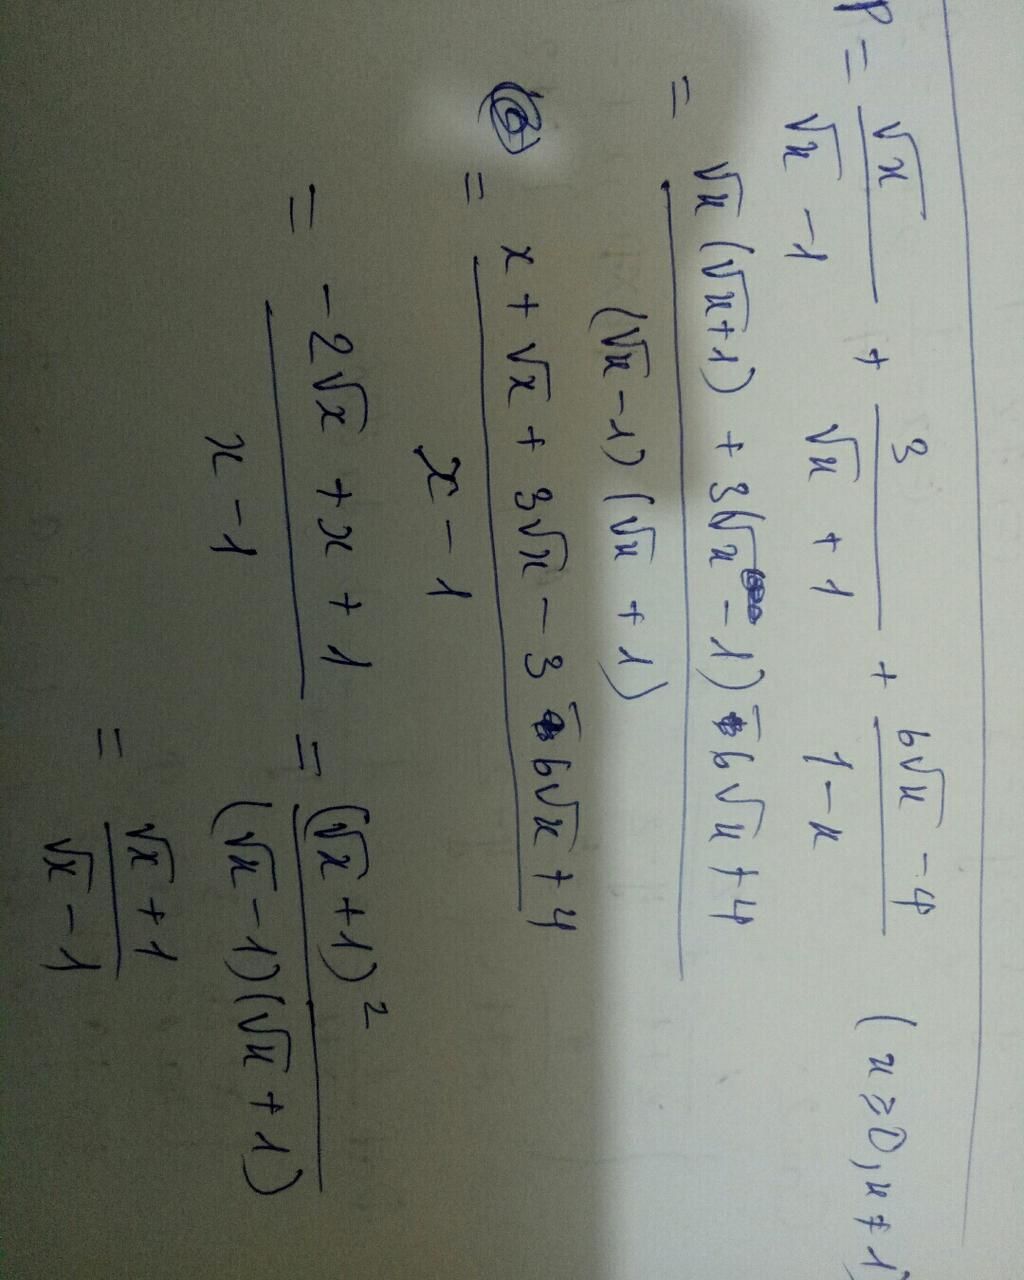 P = √x/(√x - 1) + 3/(√x + 1) + (6√x - 4)/(1 - x) (x ≥ 0, x ≠ 1)
= (√x(√x+1) + 3(√x - 1) - 6√x + 4)/((√x - 1)(√x + 1))
= (x + √x + 3√x - 3 - 6√x + 4)/(x - 1)
= (-2√x + x + 1)/(x - 1) = (√x + 1)²/((√x - 1)(√x + 1))
= (√x + 1)/(√x - 1)